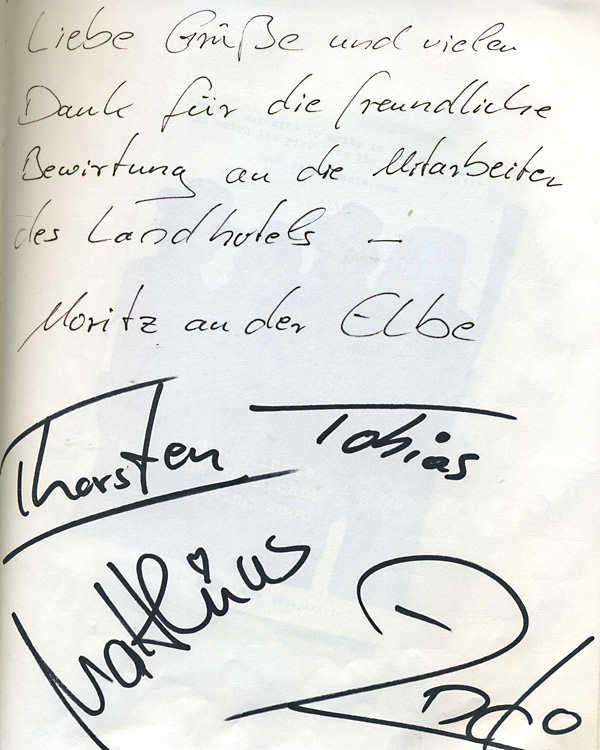 Liebe Grüße und vielen
Dank für die freundliche
Bewirtung an die Mitarbeiter
des Landhotels –
Moritz an der Elbe
Thorsten Tobias
Matthias